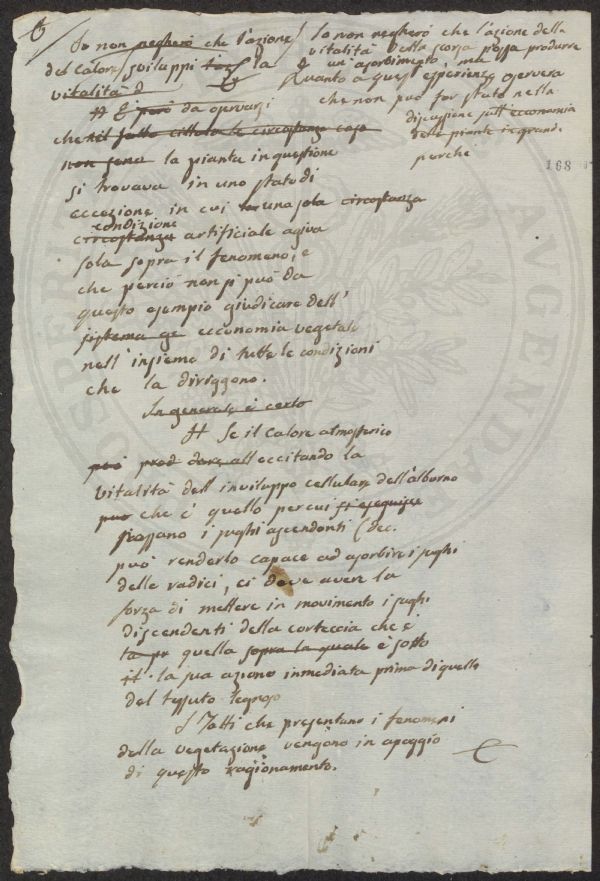 Io non negherò che l'azione
del calore / sviluppi la
vitalità d
Io non negherò che l'azione della
vitalità della scorza possa produrre
un'assorbimento, ma
Quanto a quest'esperienza osservera
che non può far stato nella
discussione sull'economia
delle piante in grande
perchè
168
# E però da osservarsi
che il fatto circostanze caso
non sena la pianta in questione
si trovava in uno stato di
eccezione in cui una sola circostanza
condizione
circostanza artificiale agiva
sola sopra il fenomeno, e
che perciò non si può da
questo esempio giudicare dell'
sistema ge economia vegetale
nell'insieme di tutte le condizioni
che la diriggono.
In generale è certo
# Se il calore atmosferico
può prod dare all eccitando la
vitalità dell'inviluppo cellulare dell'alburno
può che è quello per cui si eseguisce
passano i sughi ascendenti (dec.
può renderlo capace ad assorbire i sughi
delle radici, ei deve avere la
forza di mettere in movimento i sughi
discendenti della corteccia che è
ta pr quella sopra la quale è sotto
it. la sua azione immediata prima di quello
del tessuto legnoso
I fatti che presentano i fenomeni
della vegetazione vengono in apoggio
di questo ragionamento.